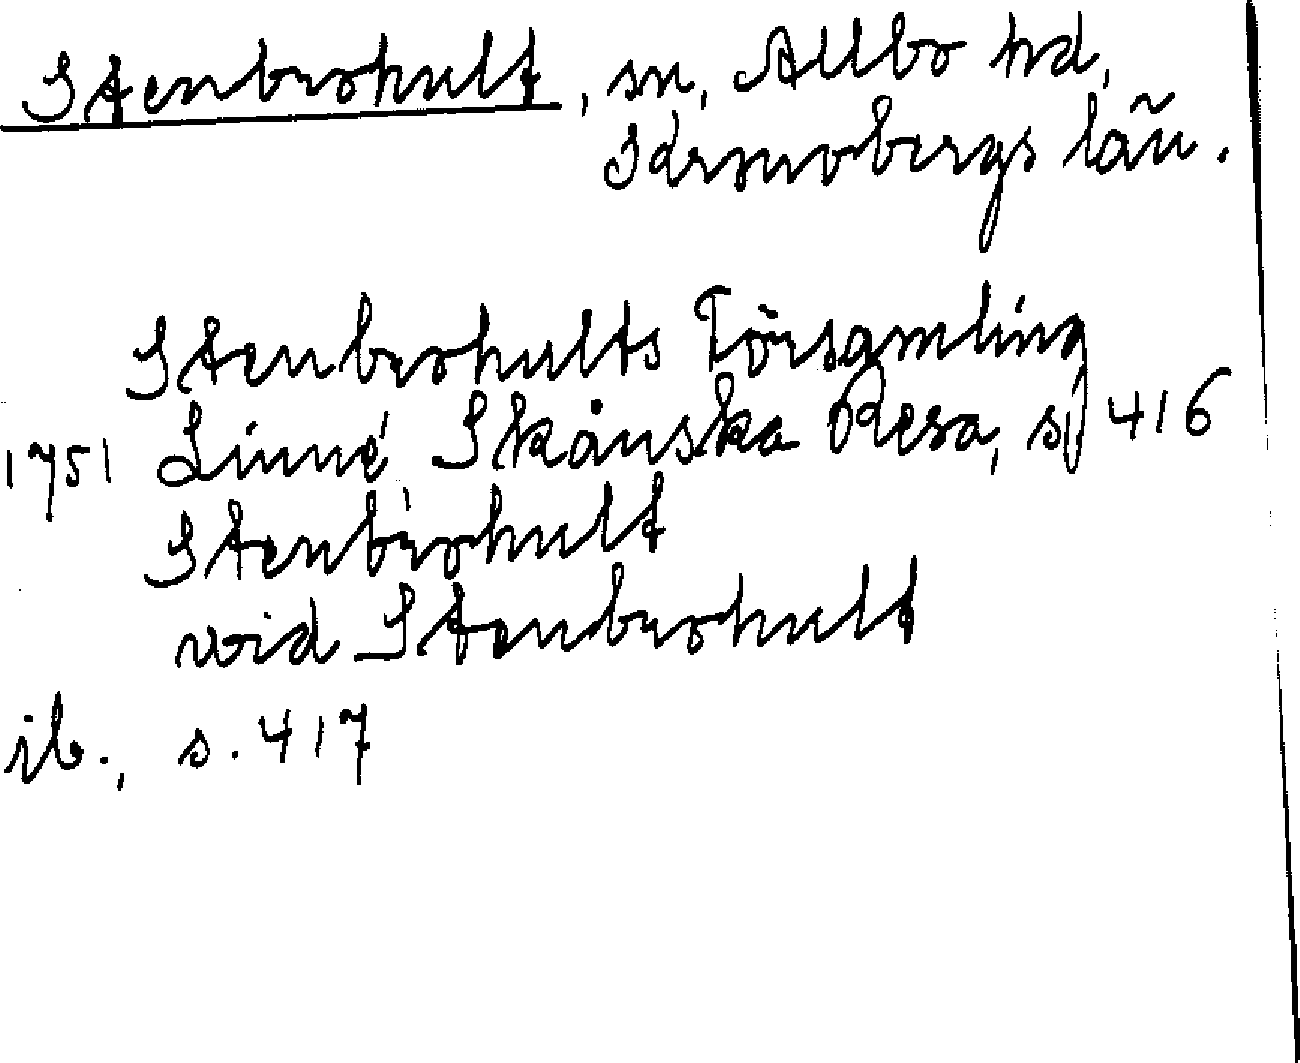 Stenbrohult, sn, Allbo hd,
Kronobergs län.
Stenbrohults Församling
1751 Linné, Skånska Resa, s. 416
Stenbrohult
wid Stenbrohult
ib., s. 417